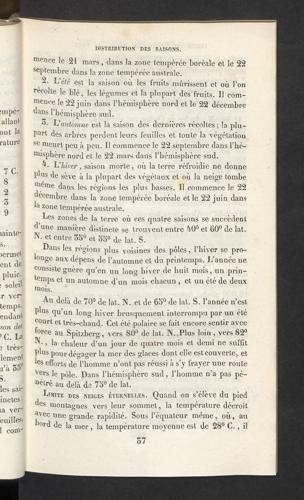 DISTRIBUTION DES SAISONS.
mence le 21 mars, dans la zone tempérée boréale et le 22
septembre dans la zone tempérée australe.
2. L'été est la saison où les fruits mûrissent et où l'on
récolte le blé, les légumes et la plupart des fruits. Il com-
mence le 22 juin dans l'hémisphère nord et le 22 décembre
dans l'hémisphère sud.
3. L'automne est la saison des dernières récoltes; la plu-
part des arbres perdent leurs feuilles et toute la végétation
se meurt peu à peu. Il commence le 22 septembre dans l'hé-
misphère nord et le 22 mars dans l'hémisphère sud.
4. L'hiver, saison morte, où la terre réfroidie ne donne
plus de sève à la plupart des végétaux et où la neige tombe
même dans les régions les plus basses. Il commence le 22
décembre dans la zone tempérée boréale et le 22 juin dans
la zone tempérée australe.
Les zones de la terre où ces quatre saisons se succèdent
d'une manière distincte se trouvent entre 40° et 60° de lat.
N. et entre 35° et 55° de lat. S.
Dans les régions plus voisines des pôles, l'hiver se pro-
longe aux dépens de l'automne et du printemps. L'année ne
consiste guère qu'en un long hiver de huit mois, un prin-
temps et un automne d'un mois chacun, et un été de deux
mois.
Au delà de 70° de lat. N. et de 65° de lat. S. l'année n'est
plus qu'un long hiver brusquement interrompu par un été
court et très-chaud. Cet été polaire se fait encore sentir avec
force au Spitzberg, vers 80° de lat. N. Plus loin, vers 82°
N., la chaleur d'un jour de quatre mois et demi ne suffit
plus pour dégager la mer des glaces dont elle est couverte, et
les efforts de l'homme n'ont pas réussi à s'y frayer une route
vers le pôle. Dans l'hémisphère sud, l'homme n'a pas pé-
nétré au delà de 75° de lat.
LIMITE DES NEIGES ÉTERNELLES. Quand on s'élève du pied
des montagnes vers leur sommet, la température décroît
avec une grande rapidité. Sous l'équateur même, où, au
bord de la mer, la température moyenne est de 28° C., il
37